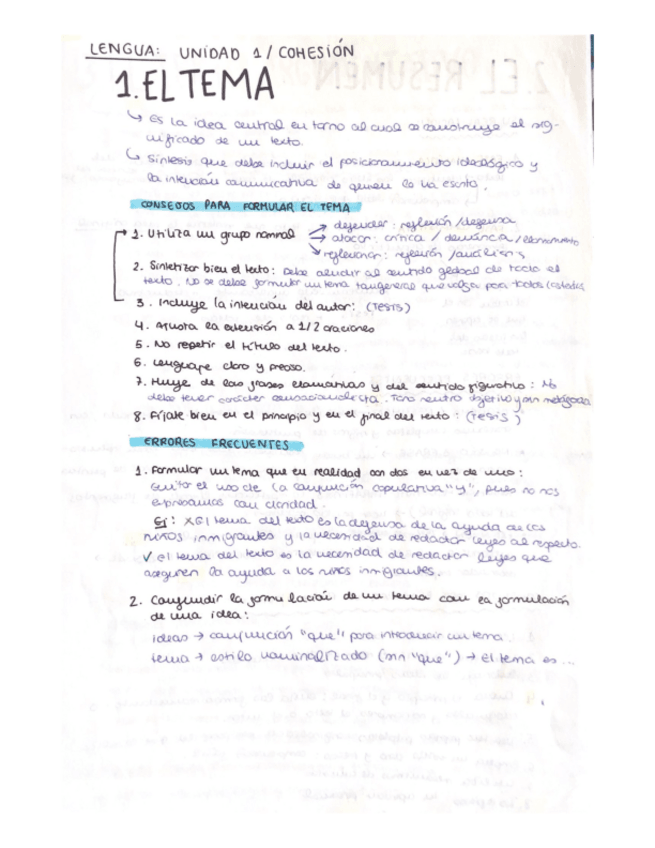 LENGUA: UNIDAD 1 / COHESIÓN
1. EL TEMA
↳ Es la idea central en torno al cual se construye el sig-
nificado de un texto.
↳ Síntesis que debe incluir el posicionamiento ideológico y
la intención comunicativa de quien lo ha escrito.
CONSEJOS PARA FORMULAR EL TEMA
1. Utiliza un grupo nominal → defender: reflexión / defensa
→ atacar: crítica / denuncia /
→ reflexionar: reflexión / análisis
2. Sintetizar bien el texto: Debe aludir al sentido global de todo el
texto. No se debe formular un tema tangencial que valga para todos
3. Incluye la intención del autor: (TESIS)
4. Ajusta la extensión a 1/2 oraciones
5. No repetir el título del texto.
6. Lenguaje claro y preciso.
7. Huye de las frases enunciativas y del sentido figurativo: No
debe tener carácter sensacionalista. Tono neutro objetivo y sin metáforas
8. Fíjate bien en el principio y en el final del texto: (TESIS)
ERRORES FRECUENTES
1. Formular un tema que en realidad son dos en vez de uno:
Evitar el uso de la conjunción copulativa "y", pues no nos
expresamos con claridad.
Ej: X El tema del texto es la defensa de la ayuda de los
niños inmigrantes y la necesidad de redactar leyes al respecto.
✓ el tema del texto es la necesidad de redactar leyes que
aseguren la ayuda a los niños inmigrantes.
2. Confundir la formulación de un tema con la formulación
de una idea:
ideas → conjunción "que" para introducir un tema
tema → estilo nominalizado (sin "que") → El tema es ...